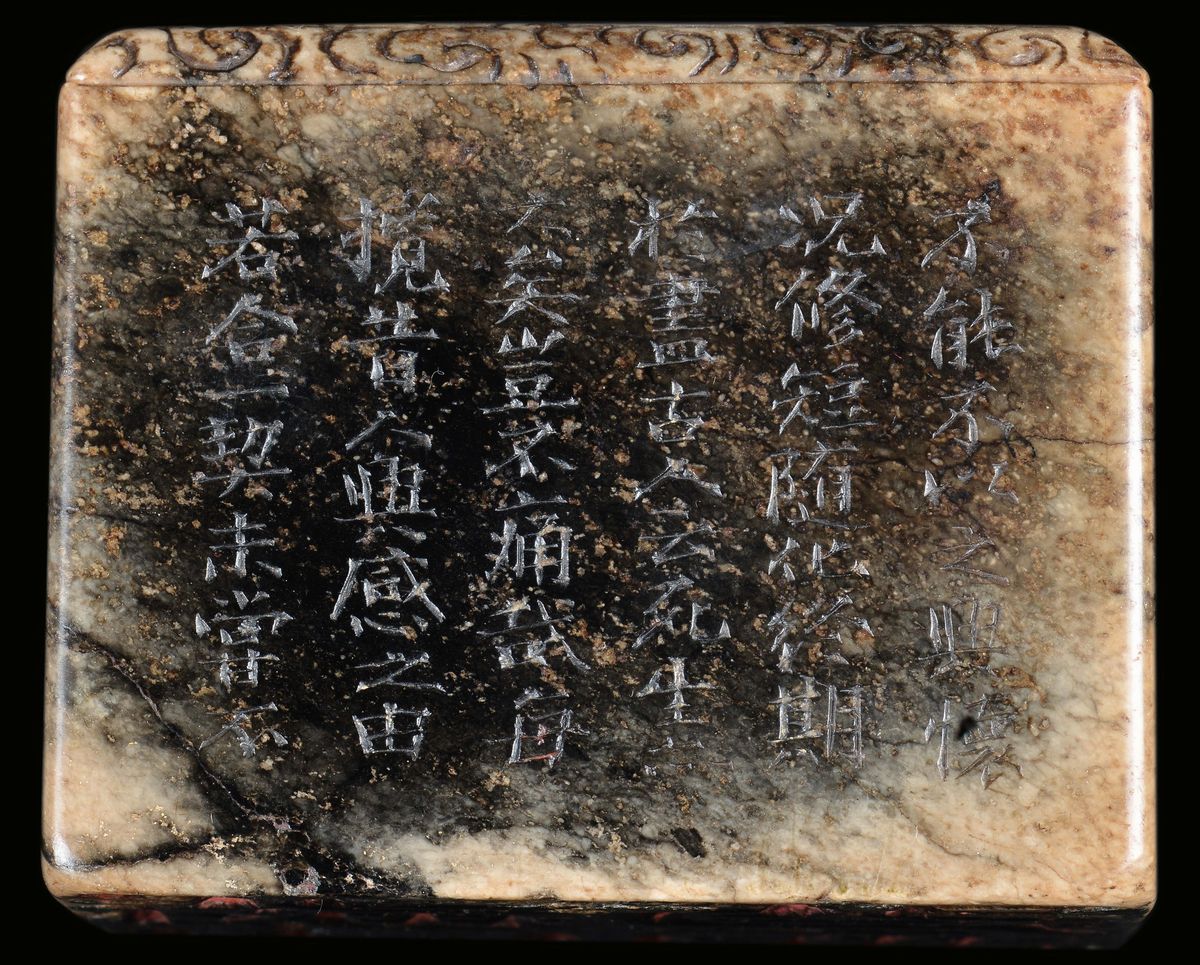 不能不以之興懷
況修短隨化終期
於盡古人云死生亦
大矣豈不痛哉每
攬昔人興感之由
若合一契未嘗不